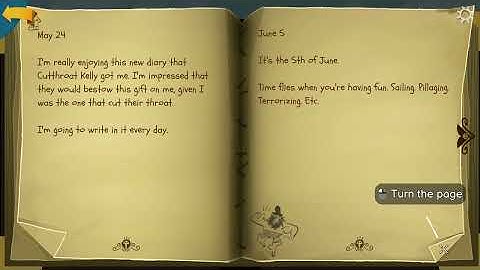 May 24
I'm really enjoying this new diary that
Cutthroat Kelly got me. I'm impressed that
they would bestow this gift on me, given I
was the one that cut their throat.
I'm going to write in it every day.
June 5
It's the 5th of June.
Time flies when you're having fun. Sailing. Pillaging.
Terrorizing. Etc.
Turn the page